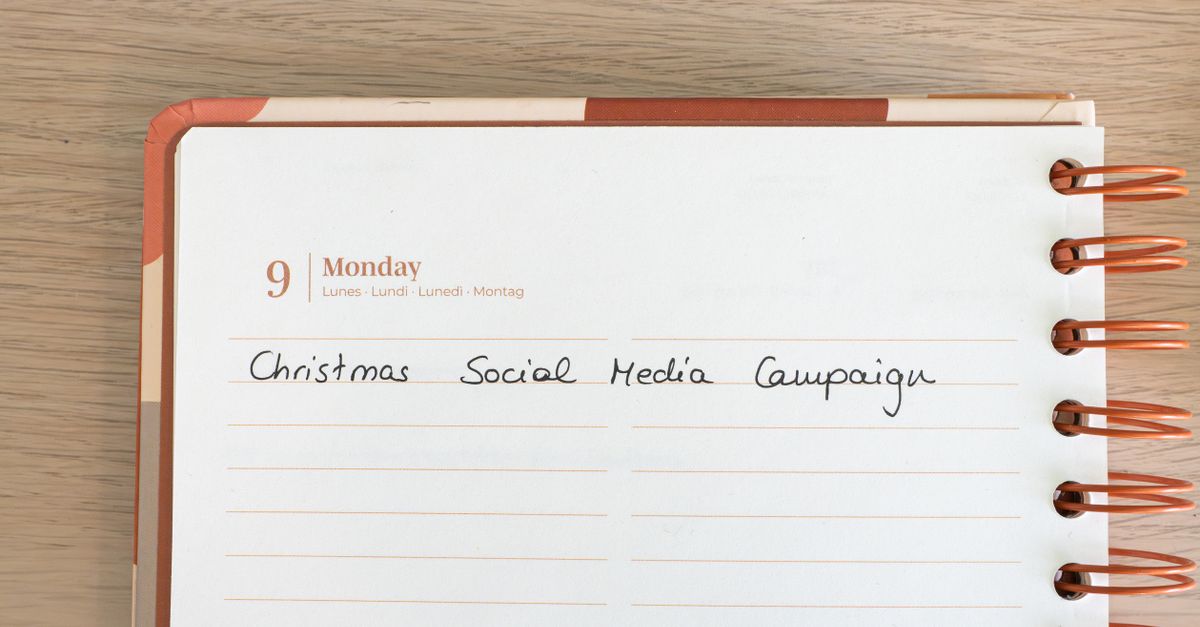 9 Monday
Lunes · Lundi · Lunedì · Montag
Christmas Social Media Campaign